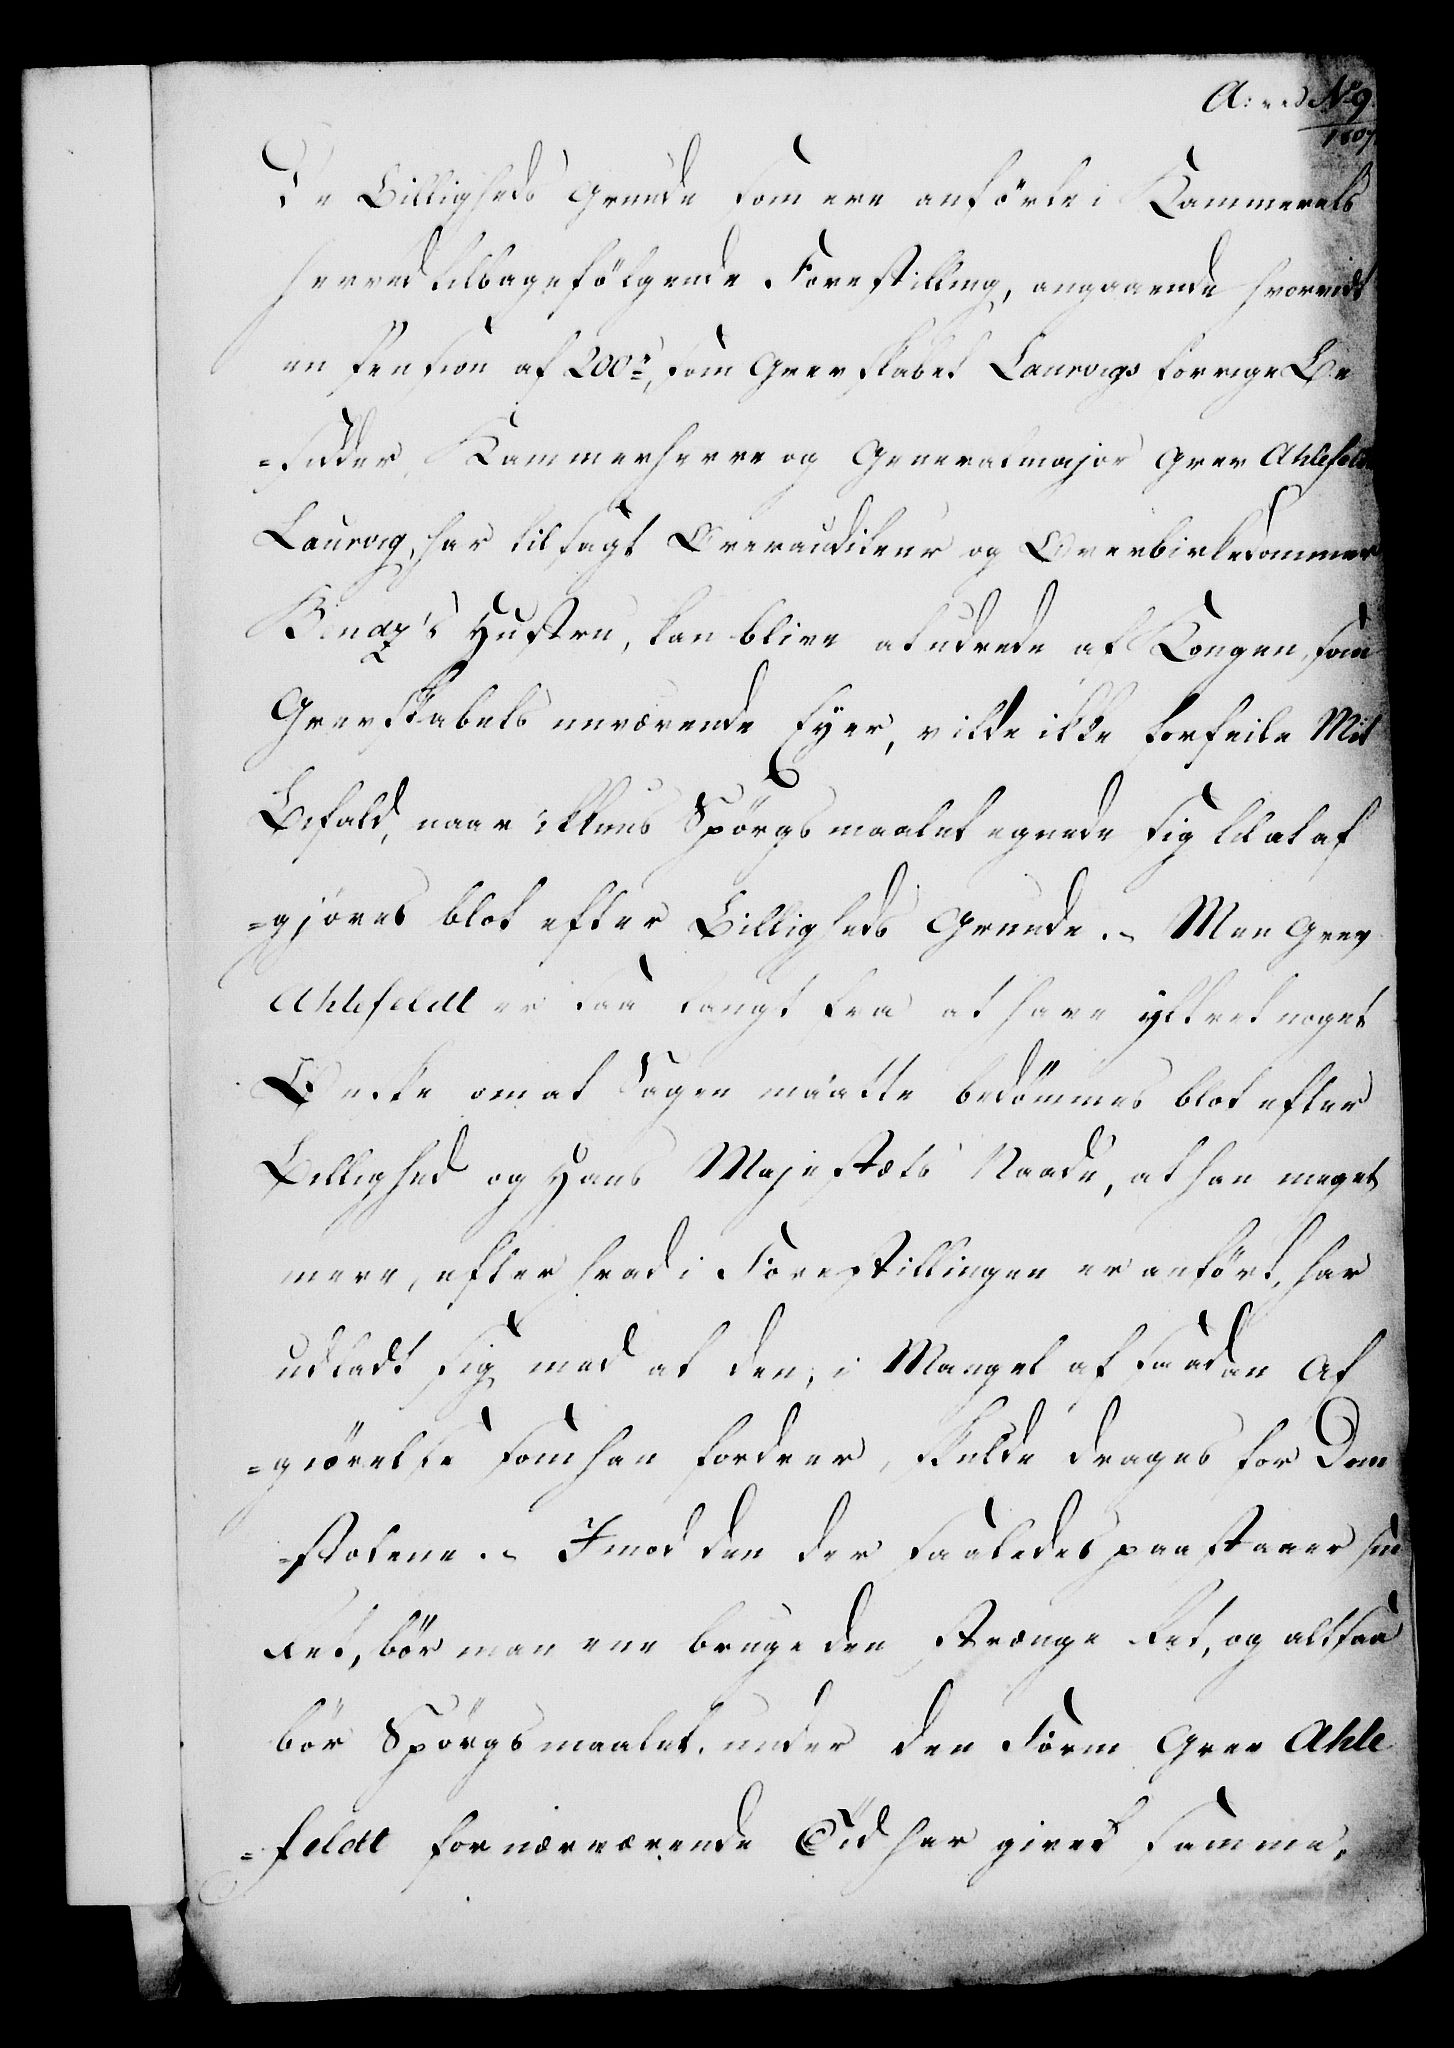 A: N° 9.
1807
De Billigheds Grunde som ere anförte i Kammerets
herved tilbagefölgende Forestilling, angaaende hvorvidt
en Pension af 200 rd, som Grevskabet Laurvigs forrige Be
=sidder Kammerherre og Generalmajor Grev Ahlefeldt
Laurvig, har tilsagt Overauditeur og Overbirkedommer
Hustru, kan blive at udrede af Kongen, som
Grevskabets nuværende Eyer, vilde ikke forfeile Mit
Bifald, naar ikkuns Spörgsmaalet egnede sig til at af
=gjöres blot efter Billigheds Grunde. - Men Grev
Ahlefeldt er saa langt fra at have yttret noget
Önske om at Sagen maatte bedömmes blot efter
Billighed og Hans Majestæts Naade, at han meget
mere, efter hvad i Forestillingen er anfört, har
udladt sig med at den, i Mangel af saadan Af
=giörelse som han fordrer, skulde drages for Dom
=stolene. - Imod den der saaledes paastaaer sin
Ret, bör man ene bruge den strænge Ret, og altsaa
bör Spörgsmaalet, under den Form Grev Ahle
=feldt for nærværende Tid har givet samme,